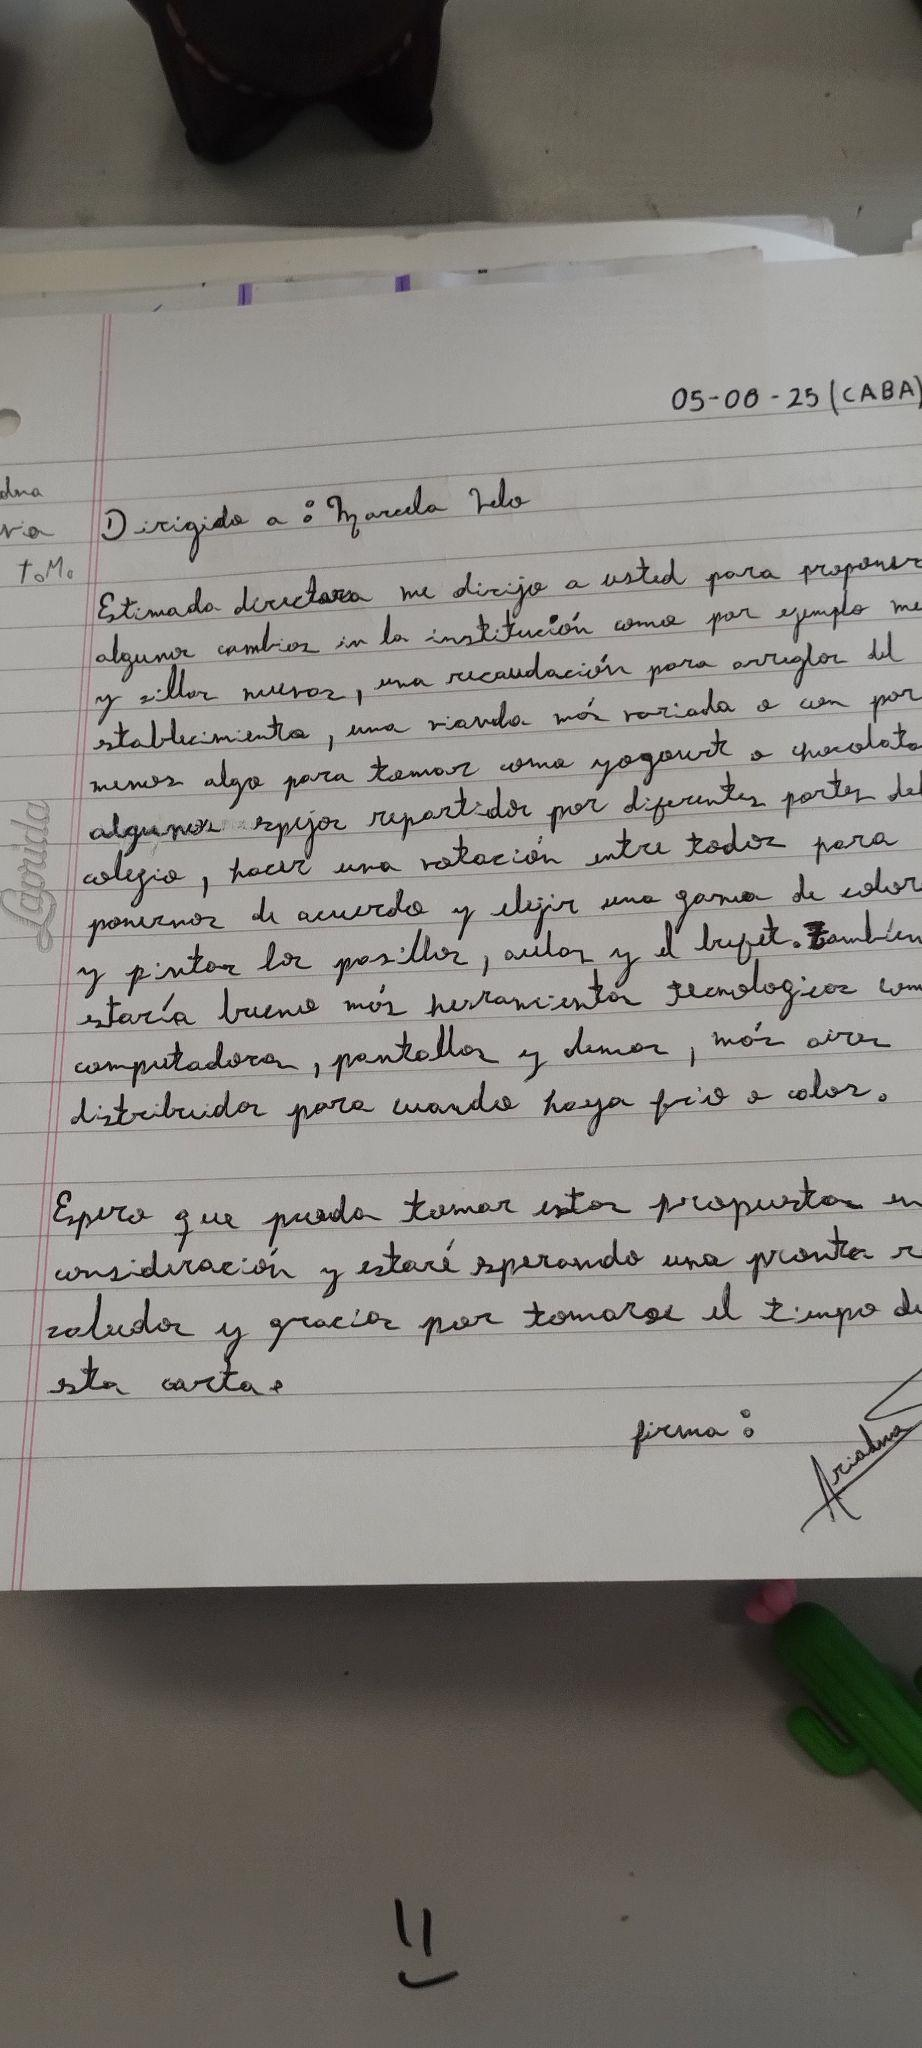 05-08-25 (CABA)
Dirigido a: Marcela
T.M.
Estimada directora me dirijo a usted para proponer
algunos cambios en la institución como por ejemplo me
y sillas nuevas, una recaudación para arreglos del
establecimiento, una vianda más variada o con por
menos algo para tomar como yogourt o chocolata
algunos espejos repartidos por diferentes partes del
colegio, hacer una votación entre todos para
ponernos de acuerdo y elejir una gama de color
y pintar los pasillos, aulas y el bufet. También
estaría bueno más herramientas tecnologicas com
computadora, pantallas y demas, más aires
distribuidos para cuando haya frio o calor.
Espero que pueda tomar estas propuestas en
consideración y estaré esperando una pronta r
saludos y gracias por tomarse el tiempo de
esta carta.
firma:
Ariadna
Laprida